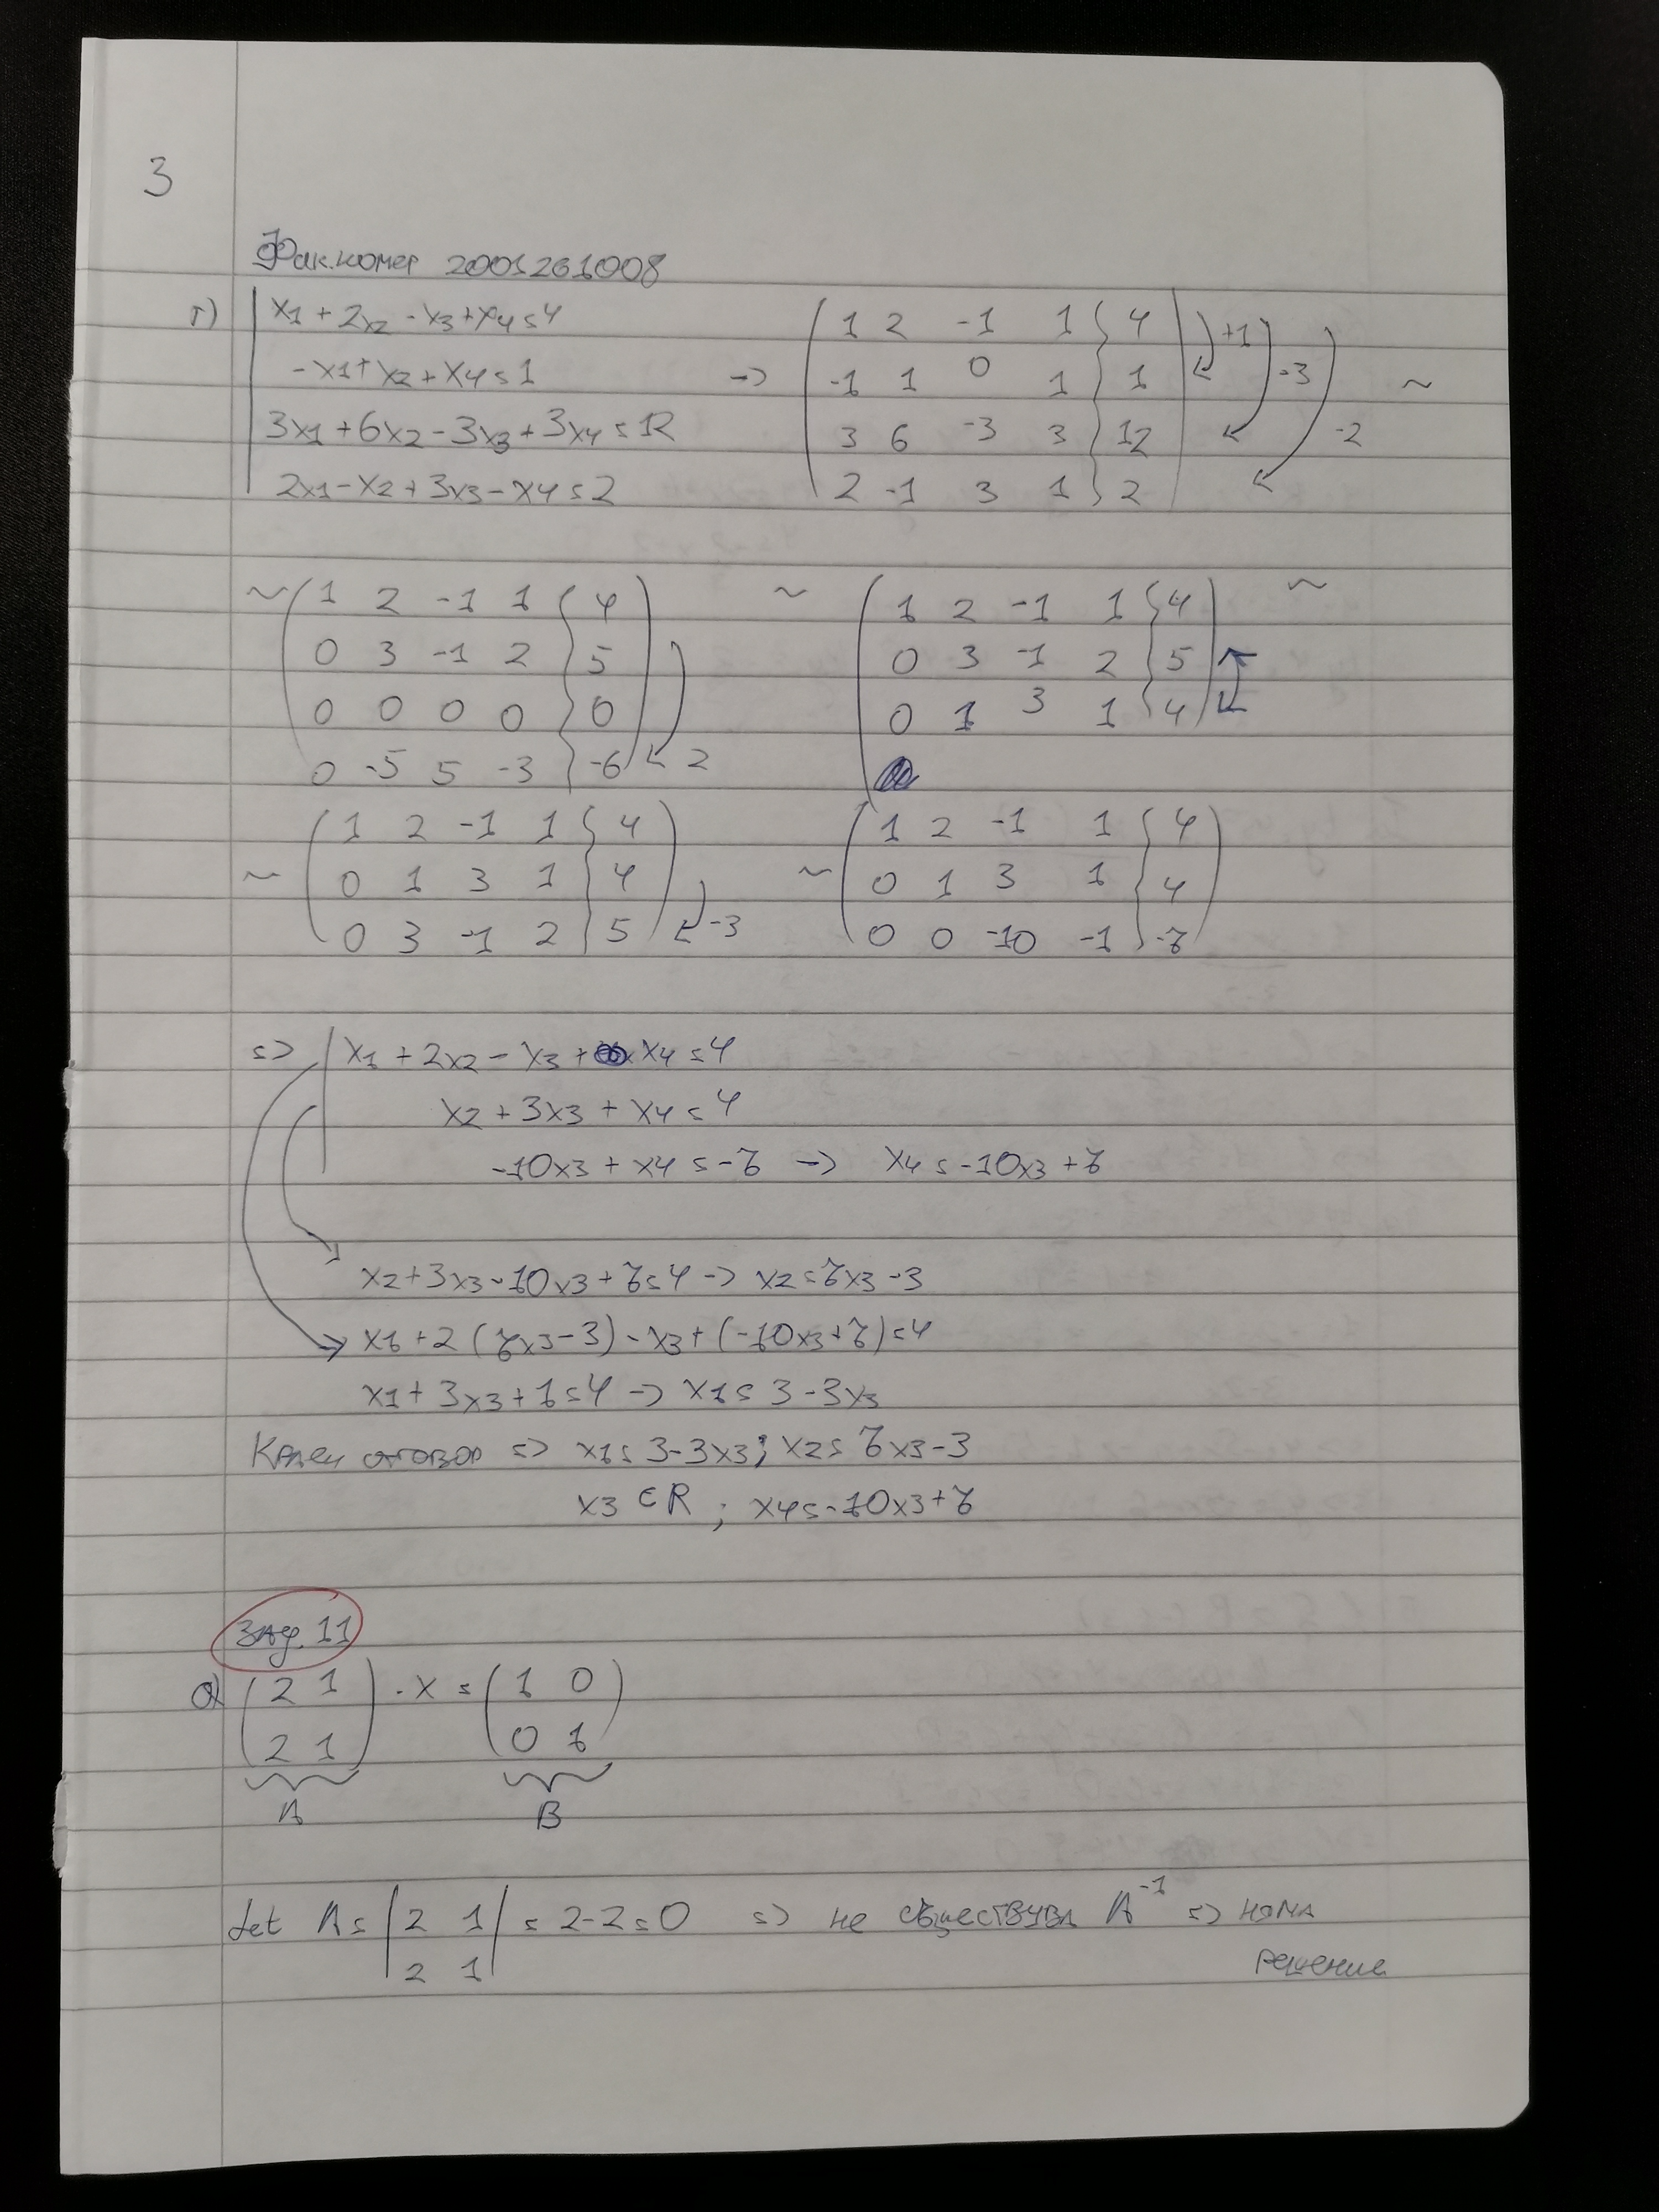 3
Фак.номер 2001261008
г) x1 + 2x2 - x3 + x4 = 4
-x1 + x2 + x4 = 1
3x1 + 6x2 - 3x3 + 3x4 = 12
2x1 - x2 + 3x3 - x4 = 2
-> ( 1 2 -1 1 | 4 ) +1
-1 1 0 1 | 1 -3 ~
3 6 -3 3 | 12 -2
2 -1 3 1 | 2
~ ( 1 2 -1 1 | 4 )
0 3 -1 2 | 5
0 0 0 0 | 0
0 -5 5 -3 | -6 2
~ ( 1 2 -1 1 | 4 ) ~
0 3 -1 2 | 5
0 1 3 1 | 4
~ ( 1 2 -1 1 | 4 )
0 1 3 1 | 4
0 3 -1 2 | 5 -3
~ ( 1 2 -1 1 | 4 )
0 1 3 1 | 4
0 0 -10 -1 | -7
=> x1 + 2x2 - x3 + x4 = 4
x2 + 3x3 + x4 = 4
-10x3 + x4 = -7 -> x4 = -10x3 + 7
x2 + 3x3 - 10x3 + 7 = 4 -> x2 = 7x3 - 3
x1 + 2(7x3 - 3) - x3 + (-10x3 + 7) = 4
x1 + 3x3 + 1 = 4 -> x1 = 3 - 3x3
Краен отговор => x1 = 3 - 3x3; x2 = 7x3 - 3
x3 ∈ R ; x4 = -10x3 + 7
Зад. 11
а) ( 2 1 ) . X = ( 1 0 )
2 1 0 1
A B
det A = | 2 1 | = 2-2=0 => не съществува A⁻¹ => няма
2 1 решение